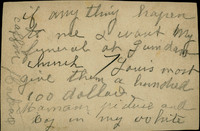 if any thing hapen
to me I want my
funeral at Jumdan
church Louis most
give them a hundred
100 dollads
Maman picture and
bog in my white